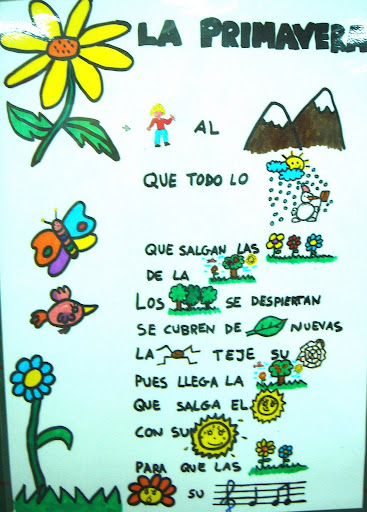 LA PRIMAVERA
AL
QUE TODO LO
QUE SALGAN LAS
DE LA
LOS SE DESPIERTAN
SE CUBREN DE NUEVAS
LA TEJE SU
PUES LLEGA LA
QUE SALGA EL
CON SU
PARA QUE LAS
SU